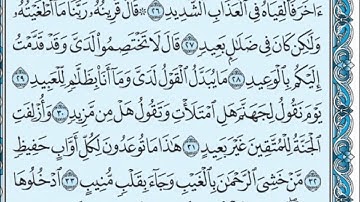 ءَاخَرَ فَأَلْقِيَاهُ فِي ٱلْعَذَابِ ٱلشَّدِيدِ ٢٦ ۞ قَالَ قَرِينُهُۥ رَبَّنَا مَآ أَطْغَيْتُهُۥ
وَلَٰكِن كَانَ فِي ضَلَٰلِۭ بَعِيدٖ ٢٧ قَالَ لَا تَخْتَصِمُواْ لَدَيَّ وَقَدْ قَدَّمْتُ
إِلَيْكُم بِٱلْوَعِيدِ ٢٨ مَا يُبَدَّلُ ٱلْقَوْلُ لَدَيَّ وَمَآ أَنَا۠ بِظَلَّٰمٖ لِّلْعَبِيدِ ٢٩
يَوْمَ نَقُولُ لِجَهَنَّمَ هَلِ ٱمْتَلَأْتِ وَتَقُولُ هَلْ مِن مَّزِيدٖ ٣٠ وَأُزْلِفَتِ
ٱلْجَنَّةُ لِلْمُتَّقِينَ غَيْرَ بَعِيدٍ ٣١ هَٰذَا مَا تُوعَدُونَ لِكُلِّ أَوَّابٍ حَفِيظٖ
٣٢ مَّنْ خَشِيَ ٱلرَّحْمَٰنَ بِٱلْغَيْبِ وَجَآءَ بِقَلْبٖ مُّنِيبٍ ٣٣ ٱدْخُلُوهَا